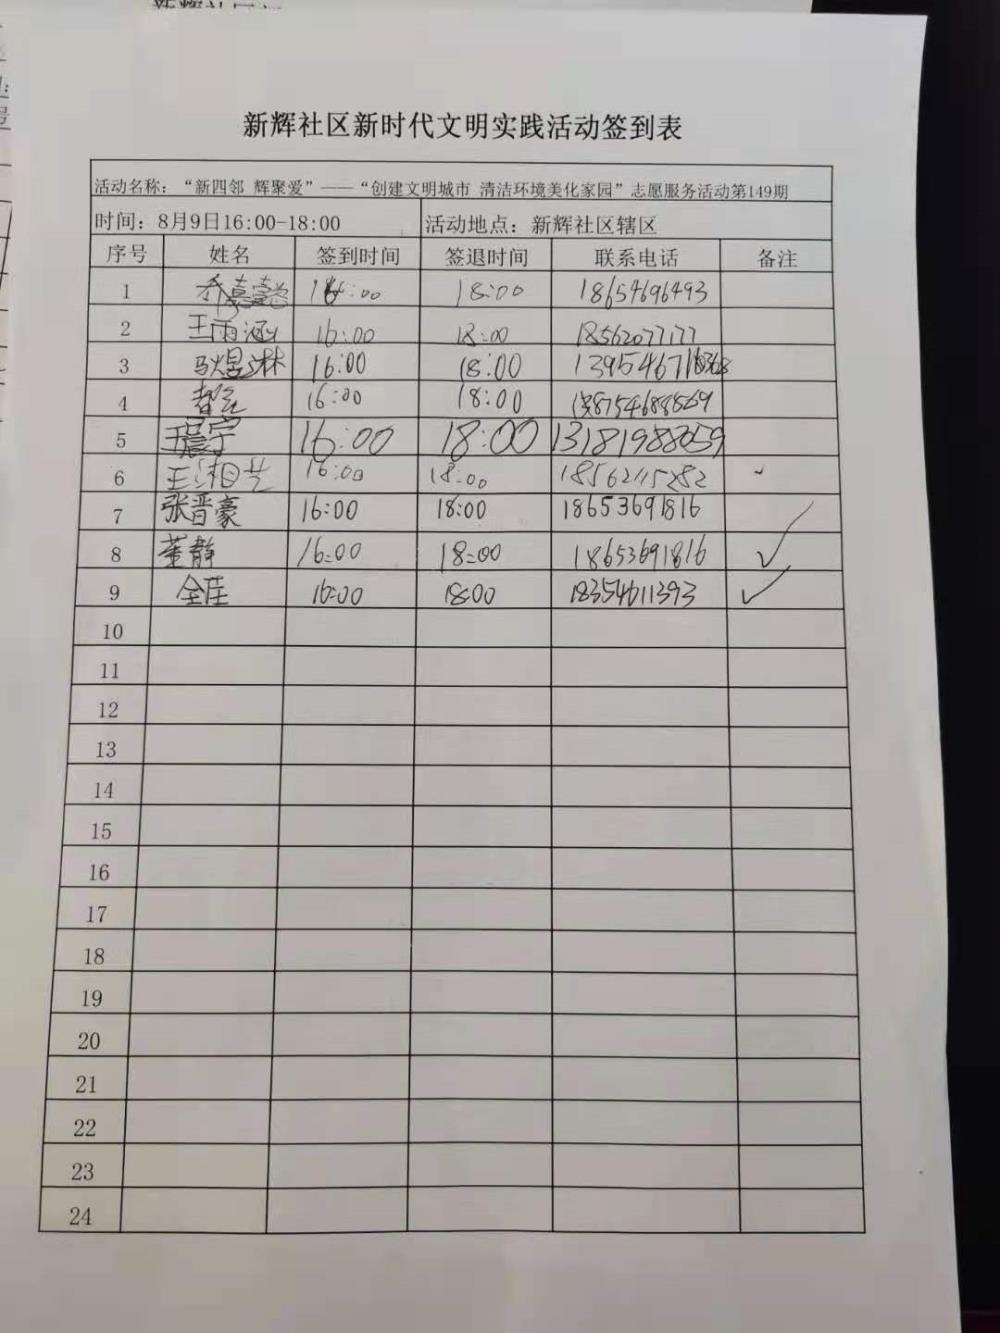 新辉社区新时代文明实践活动签到表
活动名称：“新四邻 辉聚爱”——“创建文明城市 清洁环境美化家园”志愿服务活动第149期
时间：8月9日16:00-18:00 活动地点：新辉社区辖区
序号 姓名 签到时间 签退时间 联系电话 备注
1 乔嘉懿 16:00 18:00 18654696493
2 王雨涵 16:00 18:00 18562077177
3 马煜琳 16:00 18:00
4 16:00 18:00
5 王晨宇 16:00 18:00 13181988059
6 王湘艺 16:00 18:00 18562115282
7 张晋豪 16:00 18:00 18653691816
8 董静 16:00 18:00 18653691816 ✓
9 全佳 16:00 18:00 18354611393 ✓
10
11
12
13
14
15
16
17
18
19
20
21
22
23
24